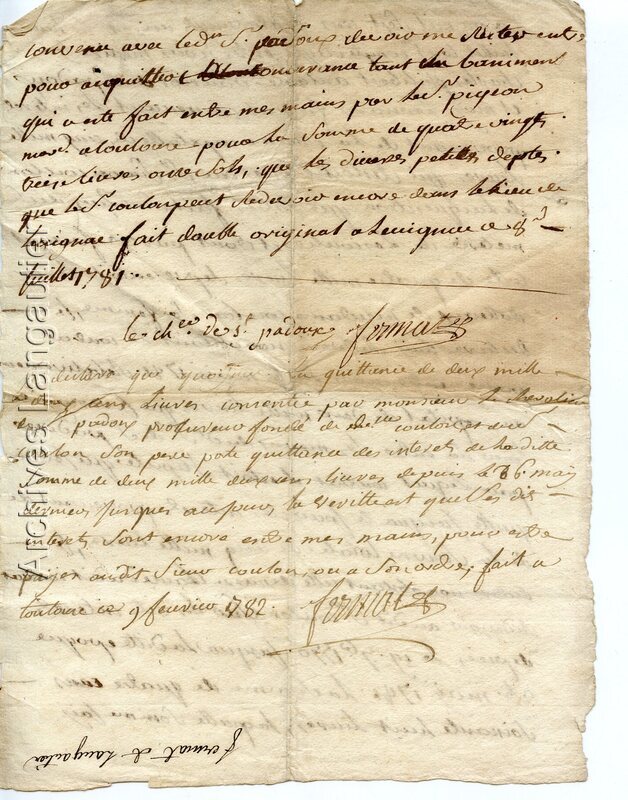 convenu avec ledn Sr padoux devoir me rester entre
pour acquitter tant du baniment
qui a eté fait entre mes mains par le Sr pigeon
mard a toulouse pour la somme de quatre vingt
treise livres onse sols, que les diverses petites deptes
que le Sr coulon peut se devoir encore dans le lieu de
levignac fait double original a levignac ce 8e
juillet 1781.
le cher de St padoux fermat
declare que quoique la quittance de deux mille
deux cens livres consentie par monsieur le chevalier
padoux procureur fondé de coulon et de Sr
coulon son pere pote quittance des interets de la ditte
somme de deux mille deux cens livres depuis le 16 may
dernier jusques au jour la veritté est que les dis
interets sont encore entre mes mains, pour etre
payes au dit Sieur coulon, ou a son ordre, fait a
toulouse ce 9 fevrier 1782. fermat
fermat de Langautier
Archives Langautier